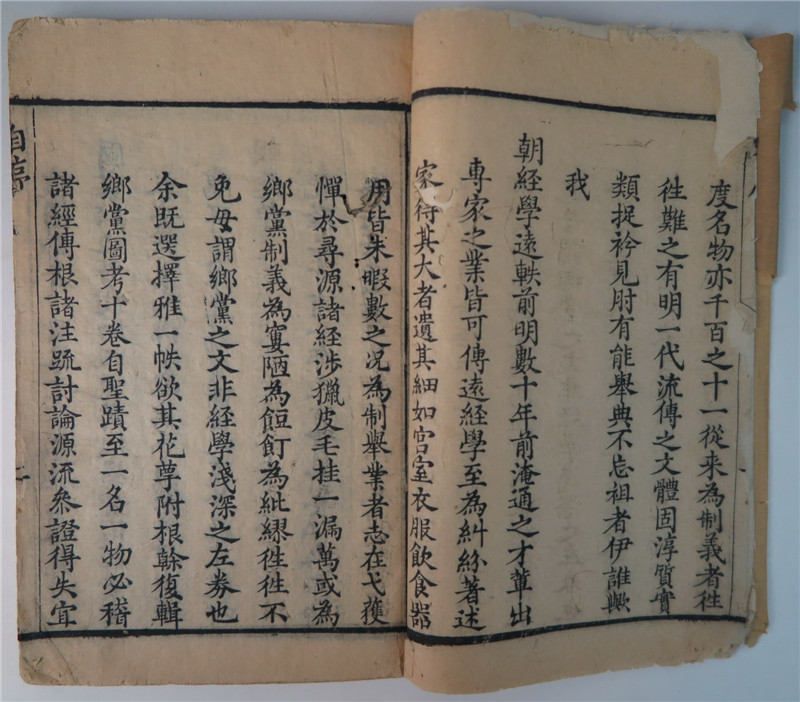 度名物亦千百之十一從来為制義者徃
徃難之有明一代流傳之文體固淳質實
類捉衿見肘有能舉典不忘祖者伊誰歟
我
朝經學遠軼前明數十年前淹通之才軰出
専家之業皆可傳遠經學至為糾紛著述
家得其大者遺其細如宫室衣服飲食器
用皆未暇數之况為制舉業者志在弋獲
憚於尋源諸經涉獵皮毛挂一漏萬或為
鄉黨制義為寠陋為餖飣為紕繆徃徃不
免毋謂鄉黨之文非經學淺深之左券也
余既選擇雅一帙欲其花萼附根榦復輯
鄉黨圖考十卷自聖蹟至一名一物必稽
諸經傳根諸注䟽討論源流叅證得失宜